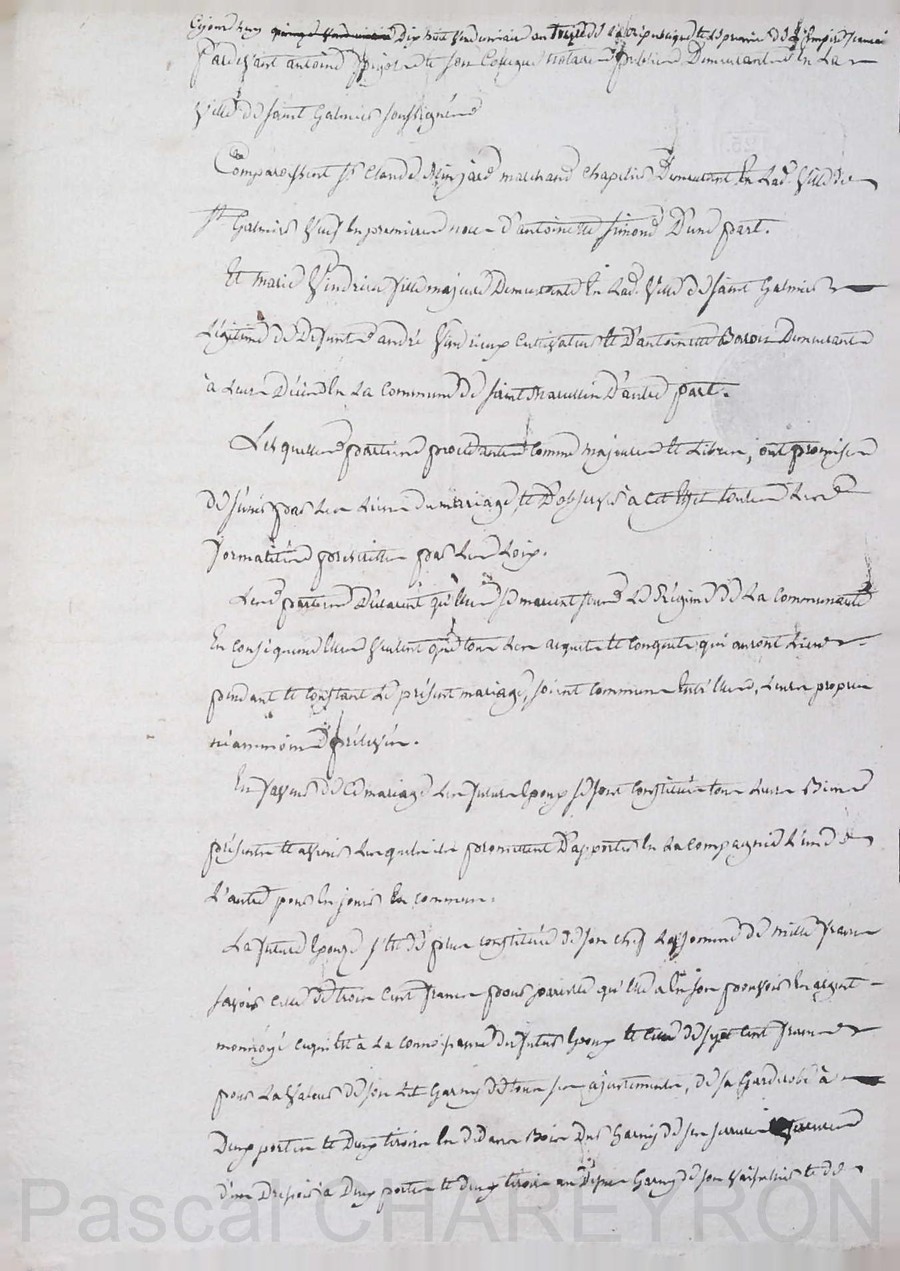 Cejourdhuy quinze Vendemiaire Dix huit Vendemiaire an treize de la république et le premier de l'Empire francais
Pardevant antoine et son Collegue notaires publics Demeurants En La
Ville de Saint Galmier soussignés
Comparoissent Sr Claude marchand Chapelier Demeurant En Lad. Ville de
St Galmier Veuf En premieres noces d'antoinette Simond D'une part.
Et marie Vindrieu fille majeure Demeurante En Lad. Ville de Saint Galmier
Légitime de Defunts andré Vindrieux Cultivateur et D'antoinette Demeurants
à Leurs Décès En La Commune de Saint Marcellin D'autre part.
Lesquelles parties procédantes comme majeures et Libres, ont promises
de s'unir par Les Liens du mariage, et D'observer à cet Effet toutes Les
formalités prescrittes par Les Loix.
Les parties Déclarent qu'Elles se marient sous Le Régime de La Communauté
En conséquence Elles Veulent que tous Les acquets et Conquets qui auront Lieu
pendant et Constant Le présent mariage, soient communs Entr'Elles, Leurs propres
néanmoins prélevés.
En faveur de Ce mariage Les futurs Epoux se sont Constitués tous Leurs Biens
présents et avenir Lesquels ils promettent D'apporter En La Compagnie L'un de
L'autre pour En jouir En commun.
La future Epouze s'Est de plus constituée de son Chef La somme de mille francs
savoir celle de trois Cent francs pour pareille qu'Elle a En son pouvoir En argent
monnoyé ce qui Est à La Connoissance du futur Epoux et celle de sept Cent francs
pour La Valeur de son Lit Garny de tous ses ajustements, de sa Garderobe à
Deux portes et Deux tiroirs En dedans Bois Garny de ses serrures
d'un Dressoir à Deux portes et deux tiroirs au Garny de son Vaisselier et de
Pascal CHAREYRON